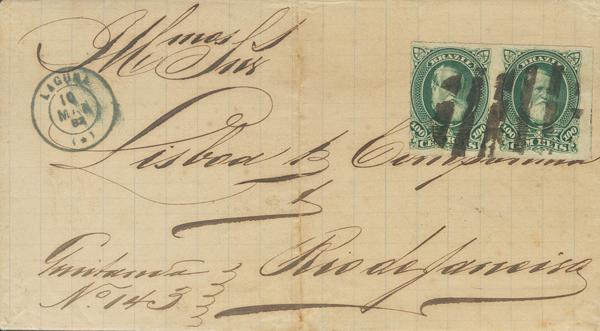 BRAZIL BRAZIL
100 100 100 100
CEM REIS CEM REIS
LAGUNA
10
MAR
82
(*)
Illmos Snrs
Lisboa & Companhia
Quitanda
No. 143
Rio de Janeiro